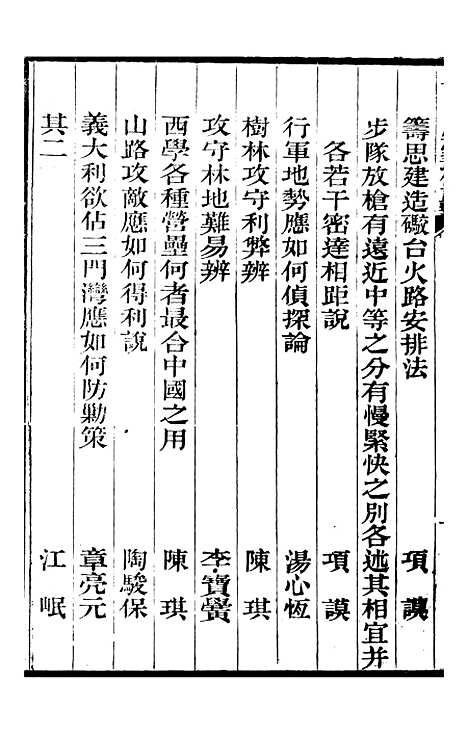 籌思建造礮台火路安排法　項謨
步隊放槍有遠近中等之分有慢緊快之別各述其相宜并
各若干密達相距說　項謨
行軍地勢應如何偵探論　湯心恆
樹林攻守利弊辨　陳琪
攻守林地難易辨　李寶鸒
西學各種營壘何者最合中國之用　陳琪
山路攻敵應如何得利說　陶駿保
義大利欲佔三門灣應如何防勦策　章亮元
其二　江岷